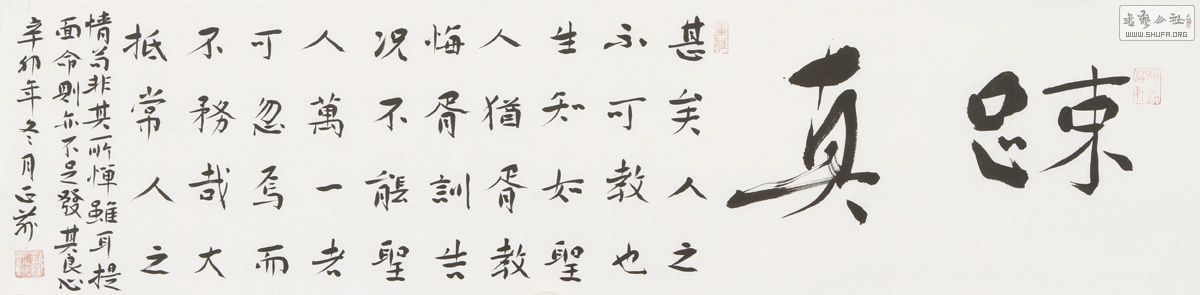 踈真
甚矣人之
不可教也
生知如聖
人猶胥教
悔胥訓告
况不能聖
人萬一者
可忽焉而
不務哉大
抵常人之
情苟非其所憚雖耳提
面命則亦不足發其良心
辛卯年冬月
書藝公社
WWW.SHUFA.ORG